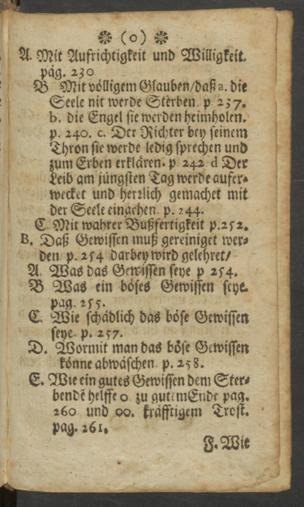 ❊ (o) ❊
A. Mit Aufrichtigkeit und Willigkeit.
pag. 230
B Mit völligem Glauben/daß a. die
Seele nit werde Sterben. p. 237.
b. die Engel sie werden heimholen.
p. 240. c. Der Richter bey seinem
Thron sie werde ledig sprechen und
zum Erben erklären. p. 242 d Der
Leib am jüngsten Tag werde aufer-
wecket und herzlich gemachet mit
der Seele eingehen. p. 244.
C. Mit wahrer Bußfertigkeit p.252.
B. Daß Gewissen muß gereiniget wer-
den p. 254 darbey wird gelehret/
A. Was das Gewissen seye p 254.
B Was ein böses Gewissen seye.
pag. 255.
C. Wie schädlich das böse Gewissen
seye. p. 257.
D. Wormit man das böse Gewissen
könne abwäschen. p. 258.
E. Wie ein gutes Gewissen dem Ster-
bendē helffe o zu gutem Ende pag.
260 und oo. kräfftigem Trost.
pag. 261.
F. Wie